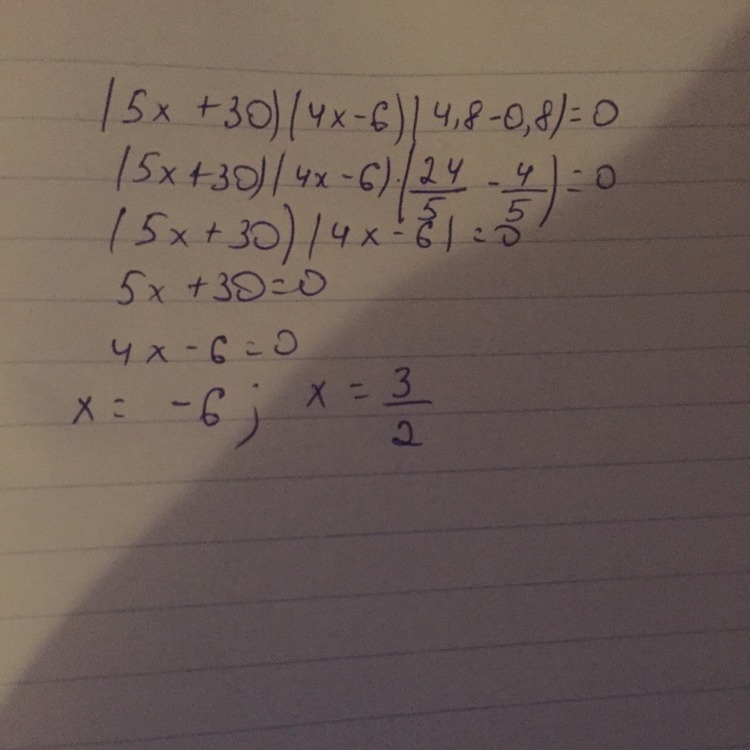 (5x +30)(4x-6)(4,8-0,8)=0
(5x+30)(4x-6)·(24/5 - 4/5)=0
(5x+30)(4x-6)=0
5x+30=0
4x-6=0
x= -6; x=3/2